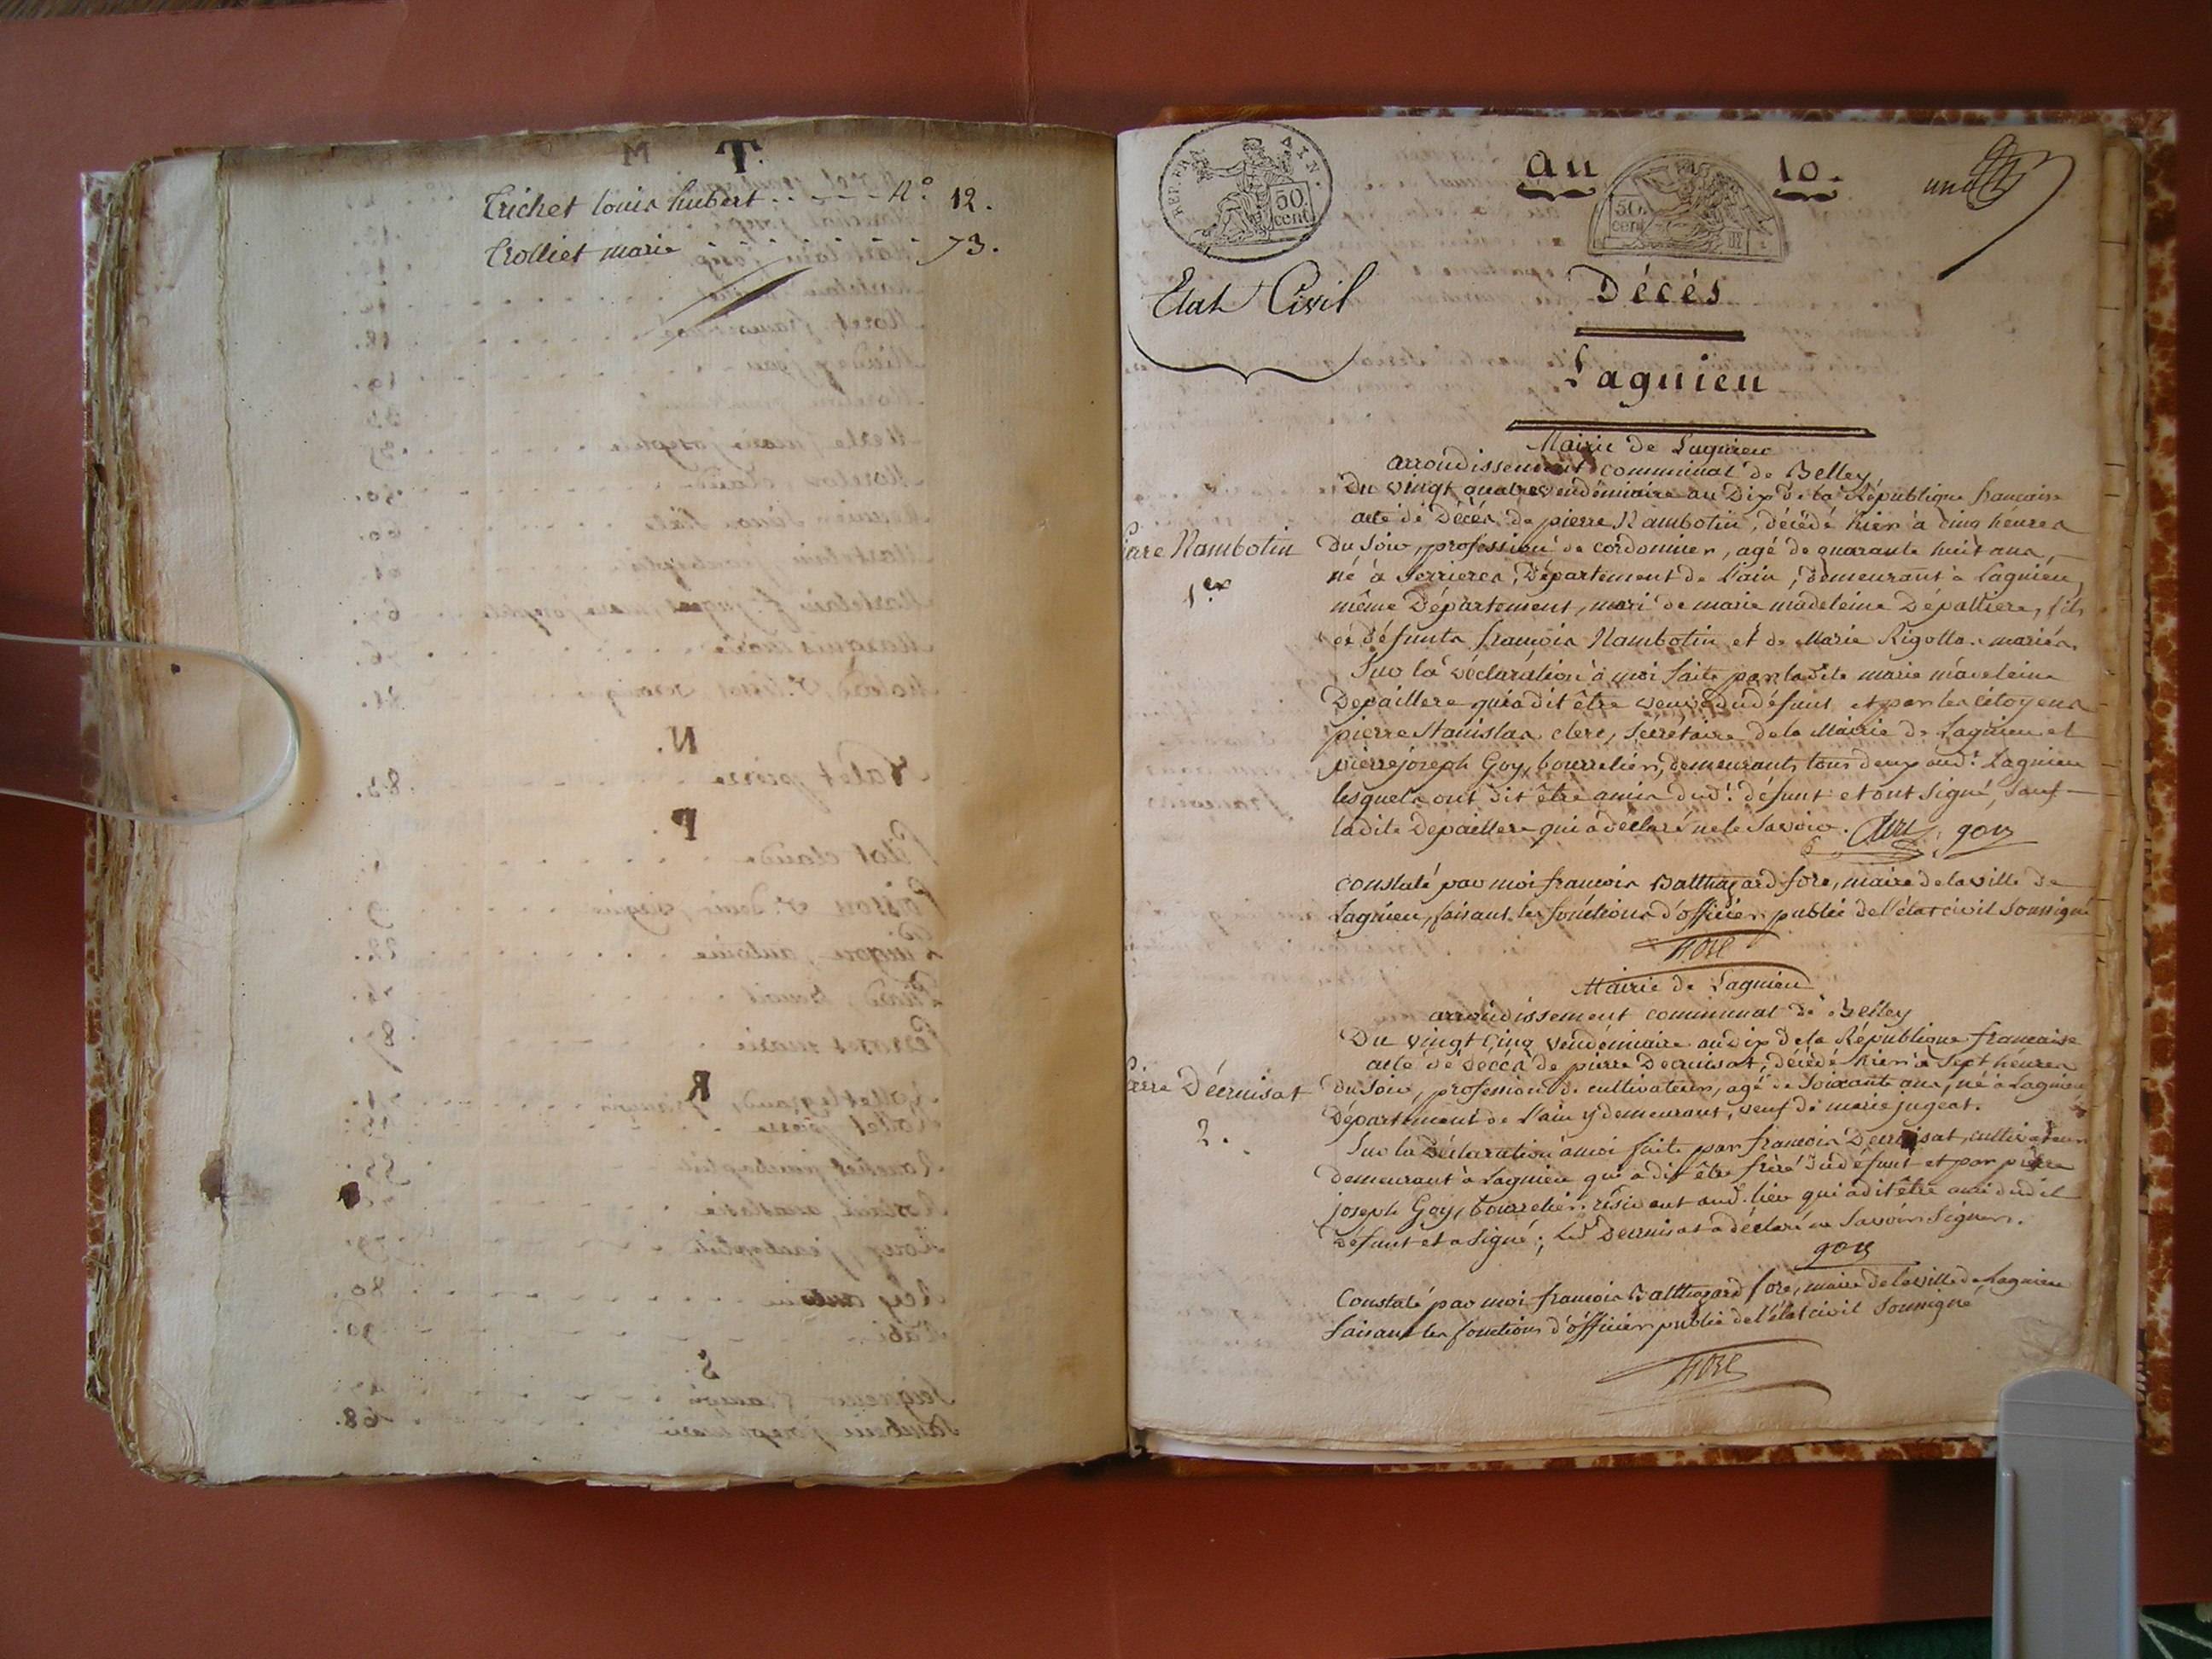 T.
Trichet louis hubert . . - - - - N.º 12.
Trolliet marie - - - - - - - 73.
REP. FRA. AIN.
50 cent
au 10.
50. cent
un
Etat Civil
Décès
Lagnieu
Mairie de Lagnieu
arrondissement communal de Belley
Du vingt quatre vendémiaire an Dix de la République française
acte de Décès de pierre Nambotin, décédé hier à cinq heures
Pierre Nambotin
du Soir, profession de cordonnier, agé de quarante huit ans,
1er
né à Serrieres, Département de l'ain, demeurant à Lagnieu,
même Département, mari de marie madeleine Dépalliere, fils
de défunts françois Nambotin et de Marie Rigollo. mariés.
Sur la déclaration à moi faite par ladite marie madeleine
Depaillere qui a dit être veuve du défunt et par les citoyens
pierre Stanislas clerc, Secrétaire de la Mairie de Lagnieu et
pierre joseph Goy, bourrelier, demeurants tous deux aud.t Lagnieu
lesquels ont dit être amis dud.t défunt et ont Signé, Sauf
ladite Depaillere qui a déclaré ne le Savoir. Clerc, goy
constaté par moi françois Balthazard fore, maire de la ville de
Lagnieu, faisant les fonctions d'officier public de l'état civil Soussigné
fore
Mairie de Lagnieu
arrondissement communal de Belley
Du vingt cinq vendémiaire an dix de la République française
acte de décès de pierre Decruisat, décédé hier à Sept heures
Pierre Décruisat
du Soir, profession de cultivateur, agé de Soixante ans, né à Lagnieu,
2.
Département de l'ain y demeurant, veuf de marie jugeat.
Sur la Déclaration à moi faite par françois Decruisat, cultivateur
demeurant à Lagnieu qui a dit être frère du défunt et par pierre
joseph Goy, bourrelier résidant aud. lieu qui a dit être ami dudit
défunt et a Signé ; led. Decruisat a déclaré ne Savoir Signer.
goy
Constaté par moi françois Balthazard fore, maire de la ville de Lagnieu
faisant les fonctions d'officier public de l'état civil Soussigné
fore